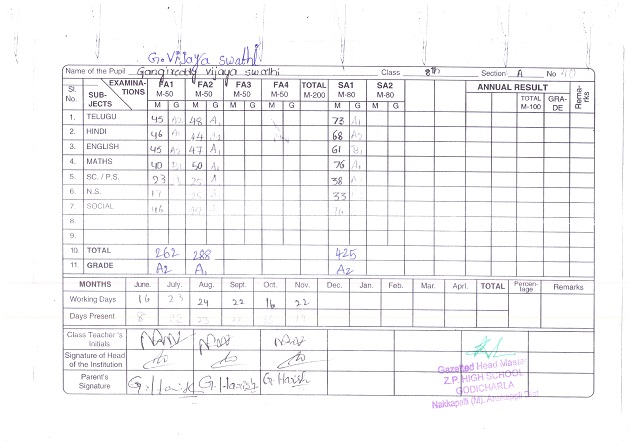 G. Vijaya Swathi
Name of the Pupil Gangireddy vijaya swathi Class 8th Section A No 40
Sl. No. SUB-JECTS EXAMINA-TIONS FA1 M-50 FA2 M-50 FA3 M-50 FA4 M-50 TOTAL M-200 SA1 M-80 SA2 M-80 ANNUAL RESULT TOTAL M-100 GRA-DE Rema-rks
M G M G M G M G M G M G
1. TELUGU 45 A2 48 A1 73 A1
2. HINDI 46 A1 44 A2 68 A2
3. ENGLISH 45 A2 47 A1 61 B1
4. MATHS 40 B1 50 A1 76 A1
5. SC. / P.S. 23 25 A 38 A
6. N.S. 33
7 SOCIAL 46
8.
9.
10. TOTAL 262 288 425
11 GRADE A2 A1 A2
MONTHS June. July. Aug. Sept. Oct. Nov. Dec. Jan. Feb. Mar. Aprl. TOTAL Percen-tage Remarks
Working Days 16 23 24 22 16 22
Days Present 8
Class Teacher's Initials
Signature of Head of the Institution
Parent's Signature G. Harish G. Harish G. Harish
Gazetted Head Master
Z.P. HIGH SCHOOL
GODICHARLA
Nakkapalli (M),